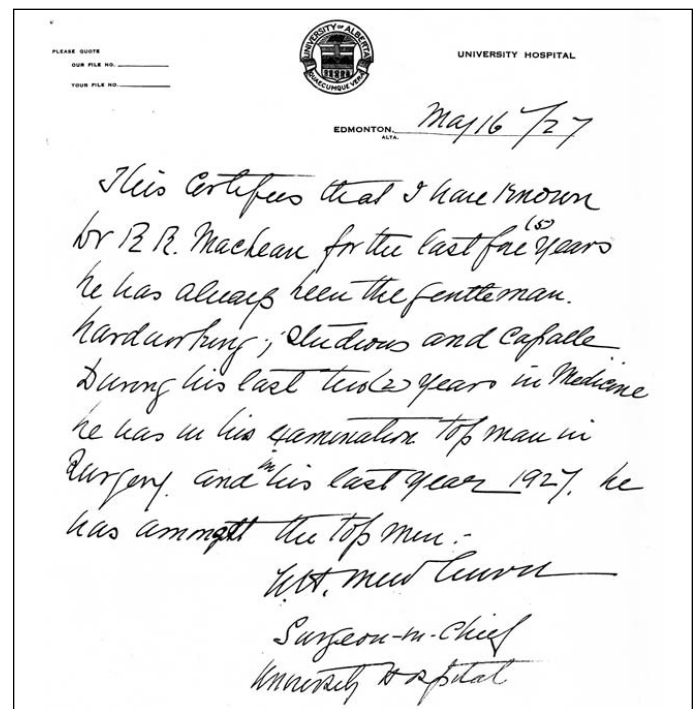 PLEASE QUOTE
OUR FILE NO.
YOUR FILE NO.
UNIVERSITY OF ALBERTA
QUAECUMQUE VERA
UNIVERSITY HOSPITAL
EDMONTON, May 16/27
ALTA.
This Certifies that I have known
Dr R. R. MacLean for the last five (5) years
he has always been the gentleman.
hardworking, studious and capable
During his last two (2) years in Medicine
he was in his examination top man in
Surgery. and in his last year 1927. he
was amongst the top men.-
Surgeon-in-Chief
University Hospital